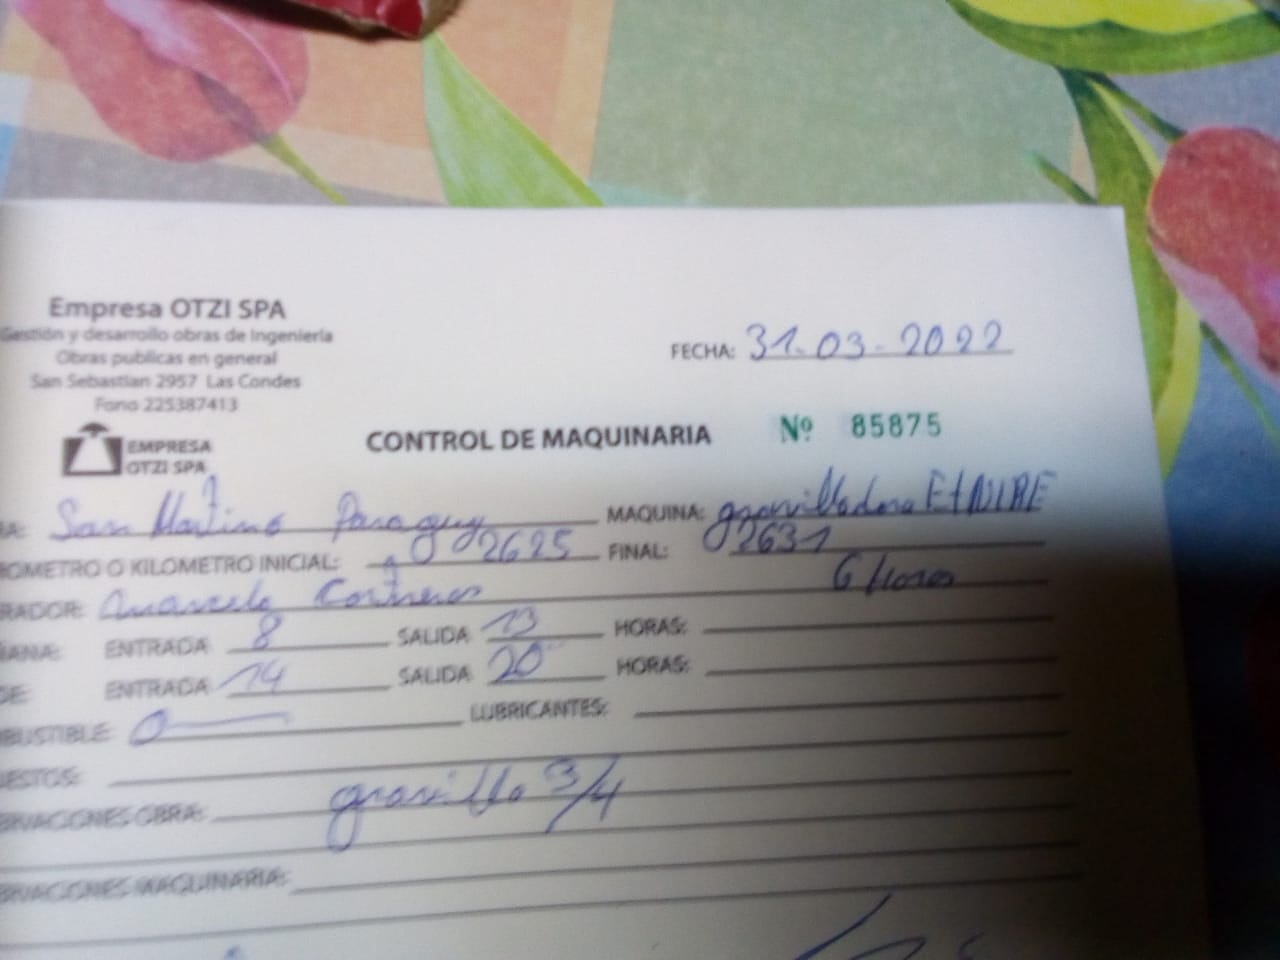 Empresa OTZI SPA
Gestión y desarrollo obras de Ingeniería
Obras publicas en general
San Sebastian 2957 Las Condes
Fono 225387413
FECHA: 31-03-2022
EMPRESA
OTZI SPA
CONTROL DE MAQUINARIA Nº 85875
RA: San Martino Paraguy MAQUINA: gravilladora EtNIRE
ROMETRO O KILOMETRO INICIAL: 2625 FINAL: 2631
RADOR: Marcelo Contreras 6 Horas
ÑANA: ENTRADA 8 SALIDA 13 HORAS:
DE: ENTRADA 14 SALIDA 20 HORAS:
BUSTIBLE: 0 LUBRICANTES:
UESTOS:
RVACIONES OBRA: gravilla 3/4
RVACIONES MAQUINARIA: